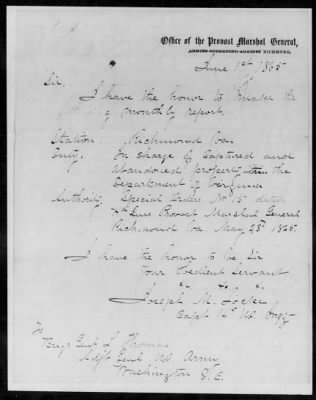 Office of the Provost Marshal General,
ARMIES OPERATING AGAINST RICHMOND,
June 1st, 1865
Sir,
I have the honor to make the
monthly report.
Station, Richmond Va.
Duty, In charge of Captured and
Abandoned property
Department of Virginia
Authority, Special Orders No 15 dated
Provost Marshal General
Richmond Va May 25th 1865.
I have the honor to be, Sir
Your Obedient Servant
Joseph M. Locke
Capt 14th US Infy
To
Brig Genl L Thomas
Adjt Genl US Army
Washington D.C.